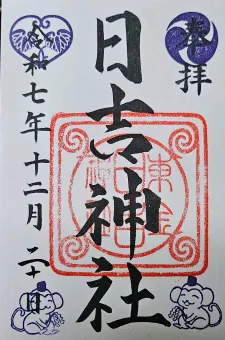 奉拝
日吉神社
令和七年十二月二十日